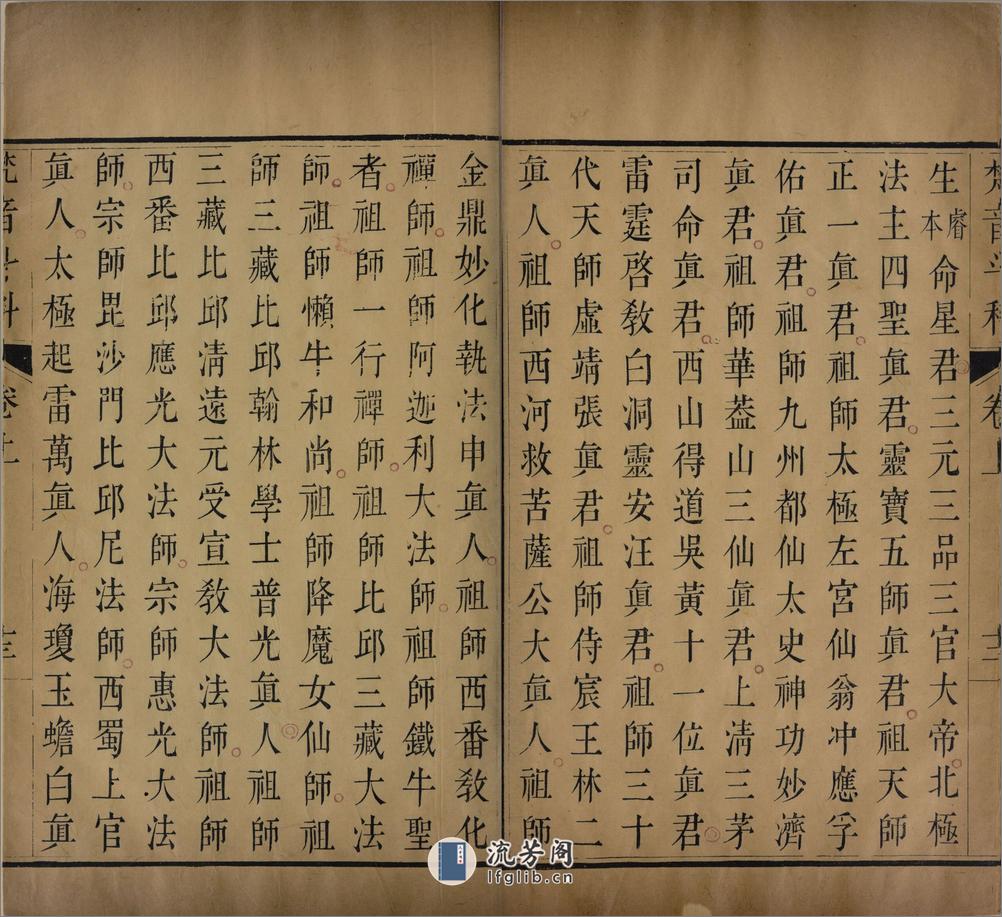 生本睿命星君三元三品三官大帝北極
法主四聖真君靈寶五師真君祖天師
正一真君祖師太極左宮仙翁冲應孚
佑真君祖師九州都仙太史神功妙濟
真君祖師華蓋山三仙真君上清三茅
司命真君西山得道吳黃十一位真君
雷霆啓敎白洞靈安汪真君祖師三十
代天師虛靖張真君祖師侍宸王林二
真人祖師西河救苦薩公大真人祖師
金鼎妙化執法申真人祖師西番敎化
禪師祖師阿迦利大法師祖師鐵牛聖
者祖師一行禪師祖師比邱三藏大法
師祖師懶牛和尚祖師降魔女仙師祖
師三藏比邱翰林學士普光真人祖師
三藏比邱淸遠元受宣敎大法師祖師
西番比邱應光大法師宗師惠光大法
師宗師毘沙門比邱尼法師西蜀上官
真人太極起雷萬真人海瓊玉蟾白真
流芳阁
lfglib.cn